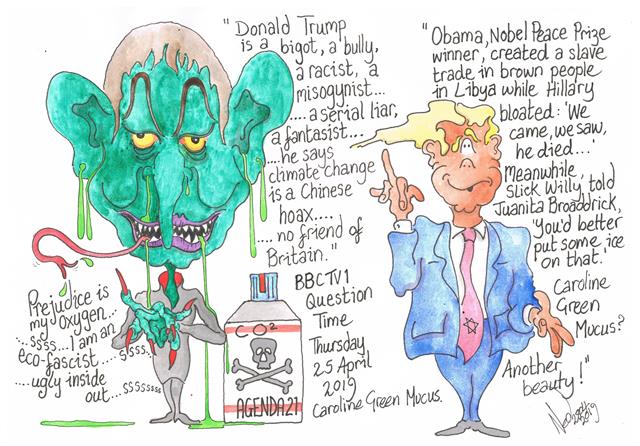 " Donald Trump
is a bigot, a bully,
a racist, a
misogynist...
.... a serial liar,
a fantasist...
...he says
climate change
is a Chinese
hoax....
.... no friend of
Britain."
BBC TV 1
Question
Time
Thursday
25 April
2019
Caroline Green Mucus.
Prejudice is
my oxygen...
...ssss... I am an
eco-fascist....ssss...
...ugly inside
out...sssssss
CO2
AGENDA 21
"Obama, Nobel Peace Prize
winner, created a slave
trade in brown people
in Libya while Hillary
bloated: 'We
came, we saw,
he died...'
Meanwhile,
Slick Willy told
Juanita Broaddrick,
'You'd better
put some ice
on that.'
Caroline
Green
Mucus?
Another
beauty!"